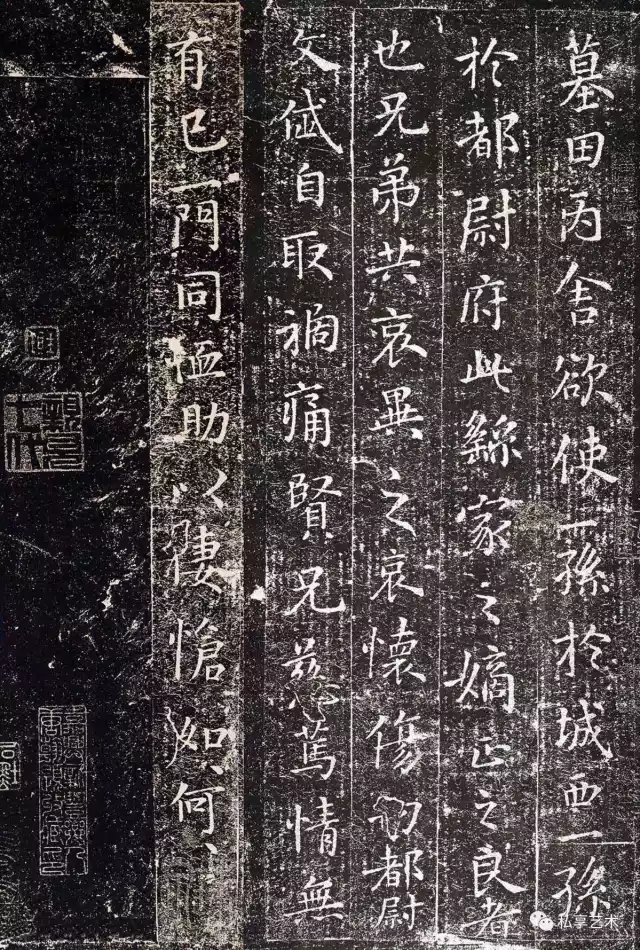 墓田丙舍欲使一孫於城西一孫
於都尉府此繇家之嫡正之良者
也兄弟共哀異之哀懷傷切都尉
文岱自取禍痛賢兄慈篤情無
有已一門同恤助以悽愴如〻何〻
私享艺术